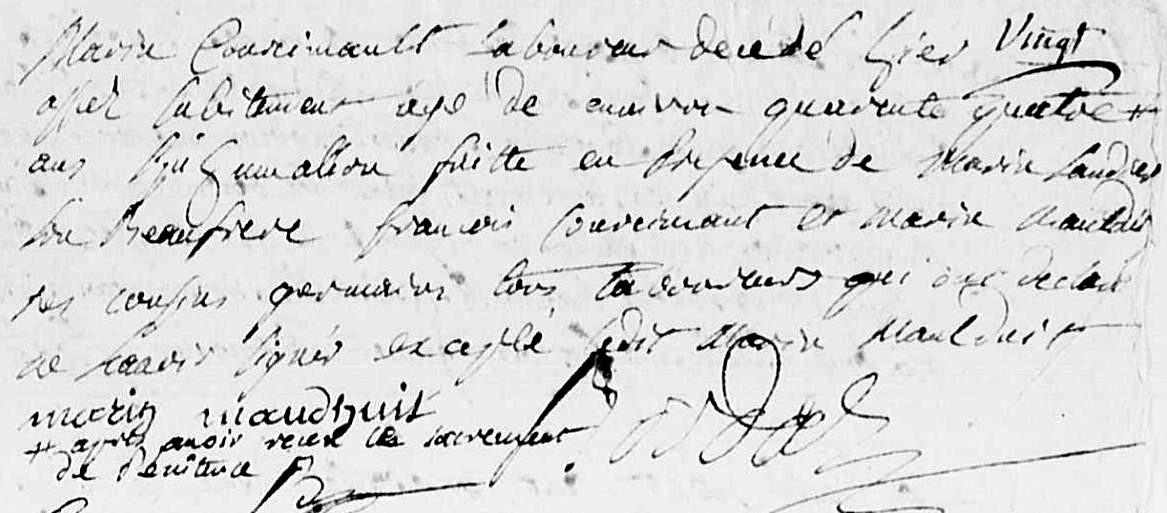 Marin Courcimault laboureur décédé hier Vingt
assez subitement agé de environ quarente quatre +
ans son inhumation faitte en presence de Marin Landres
son Beaufrere francois Courcimaut et Marin Mauduit
ses cousins germains tous laboureurs qui ont declaré
ne scavoir signer excepté ledit Marin Mauduit
marin maudhuit
+ apres avoir recue le sacrement
de Penitence